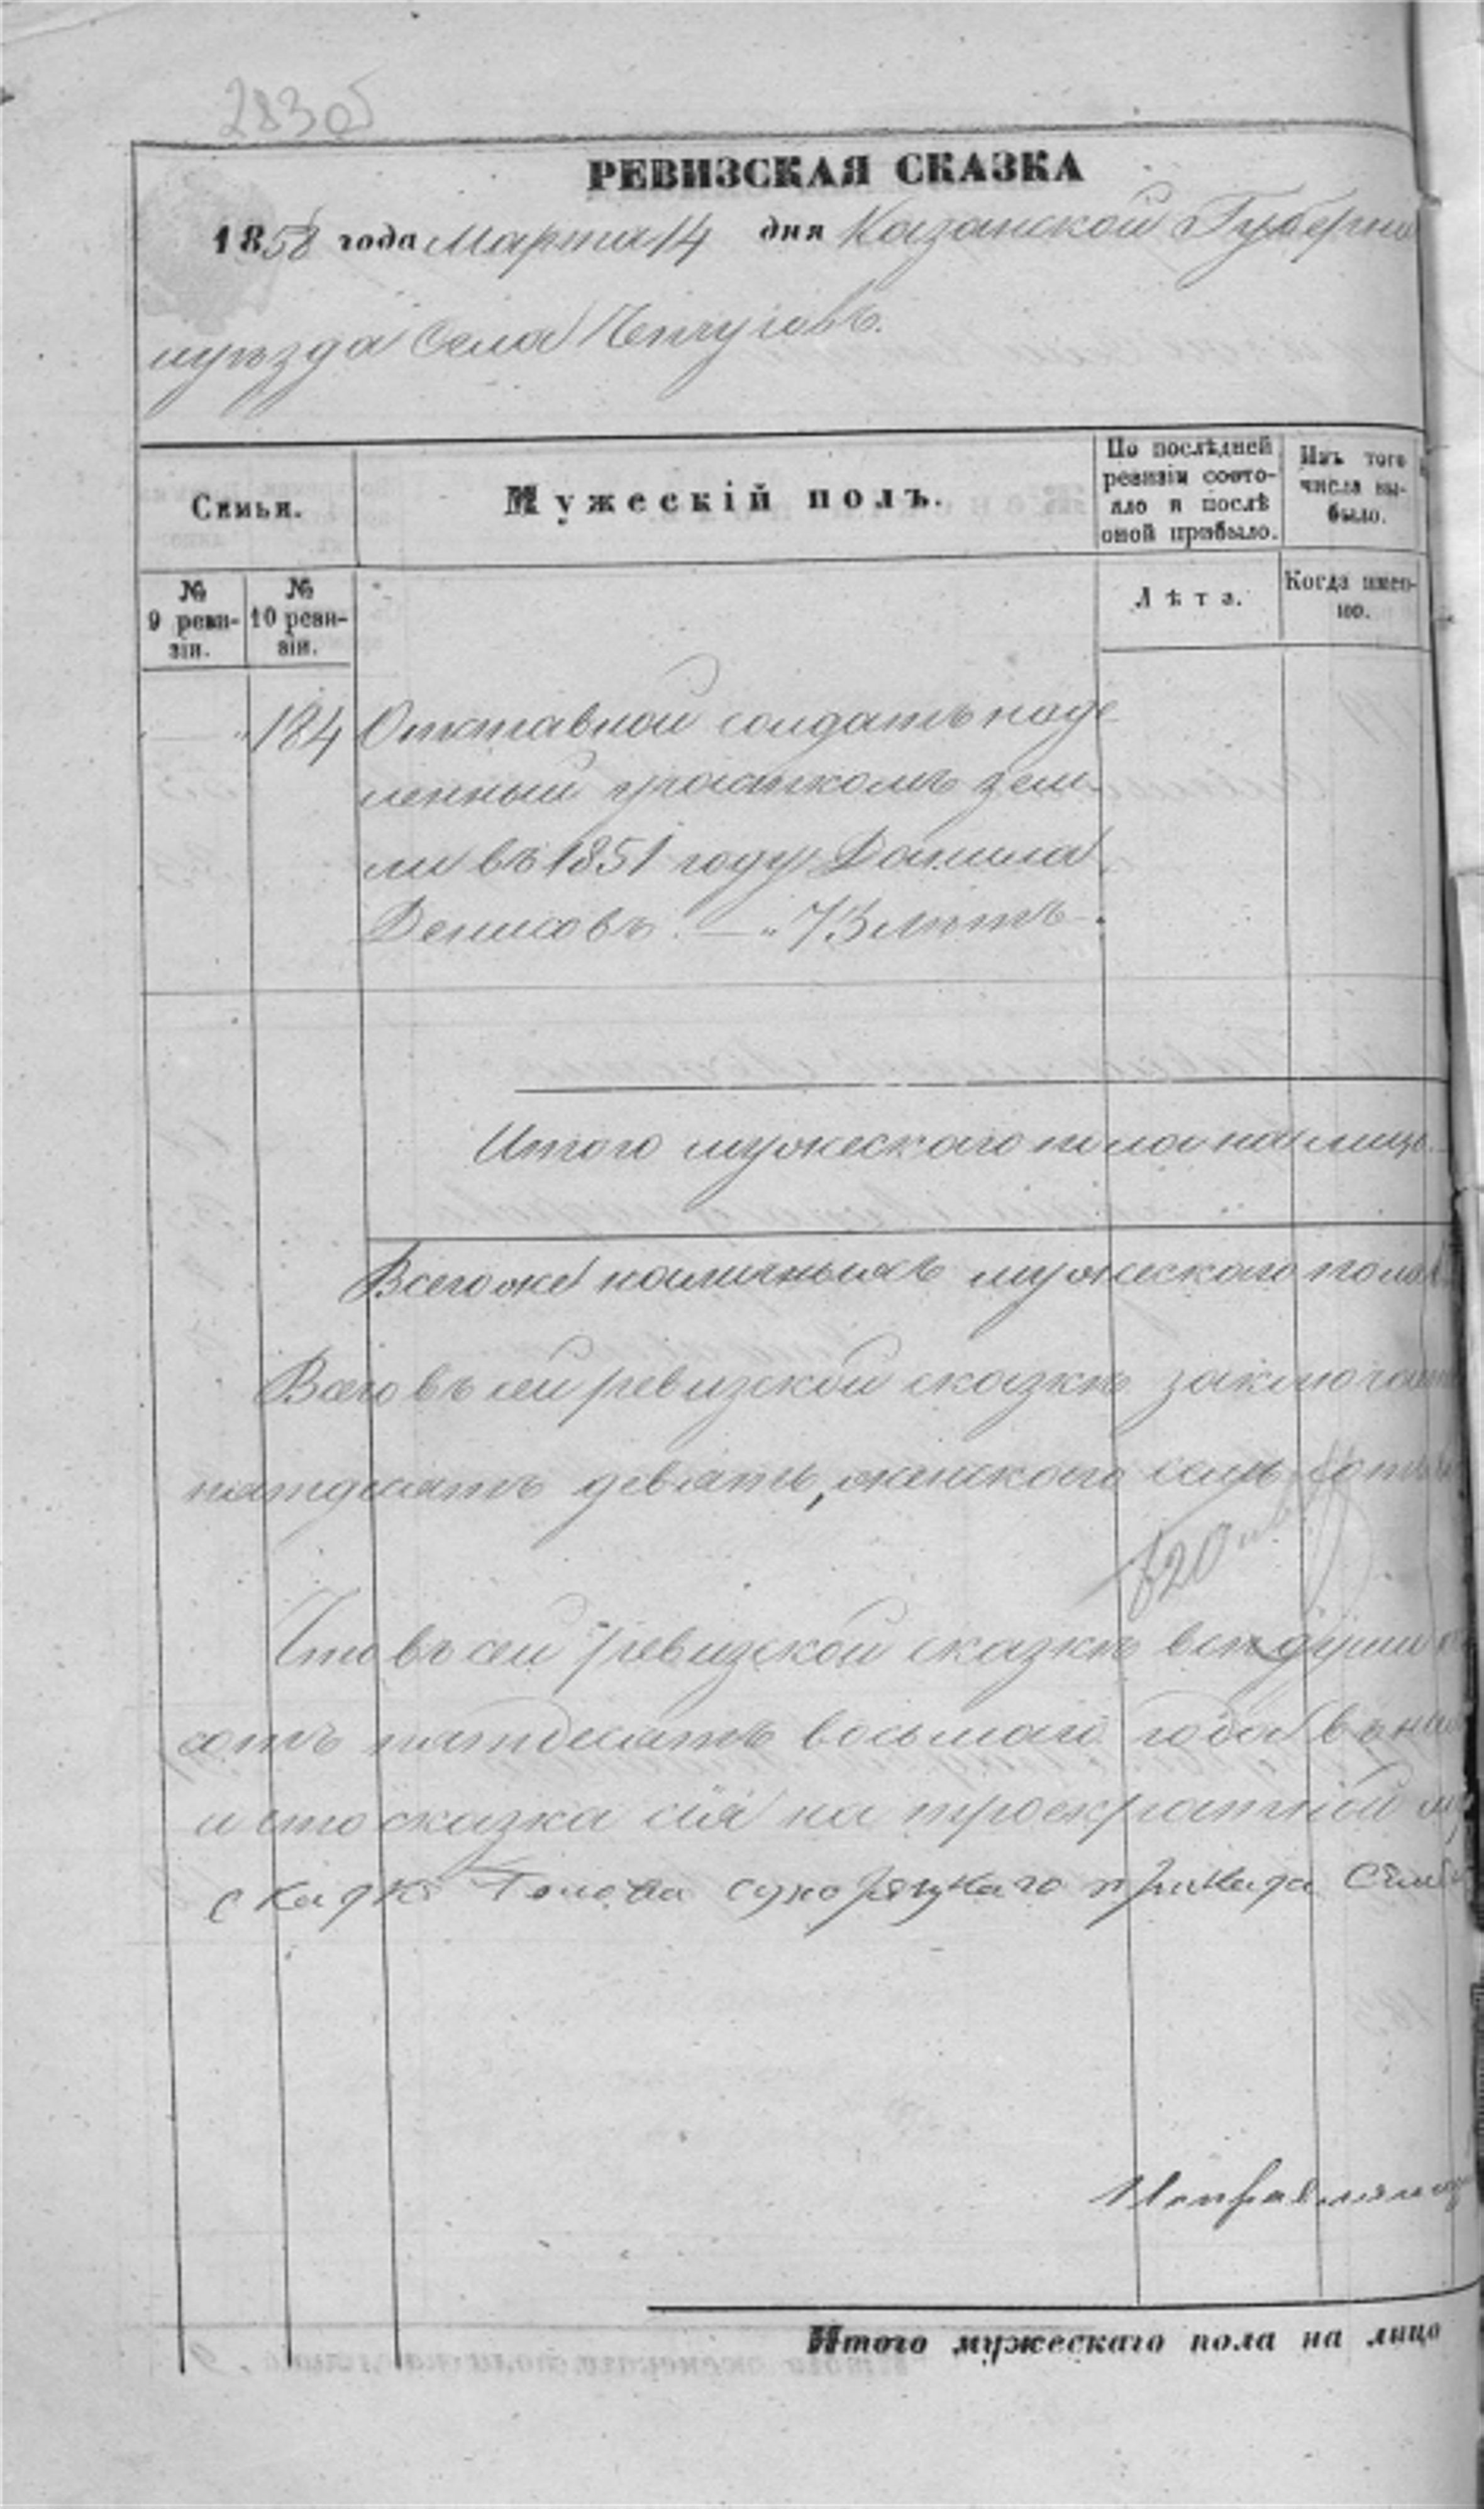 283об
РЕВИЗСКАЯ СКАЗКА
1858 года Марта 14 дня Казанской Губерніи
цуѣзда Села Чепчуговъ.
Семьи.
Мужескій полъ.
По послѣдней ревизіи состояло и послѣ оной прибыло.
Изъ того числа выбыло.
№ 9 ревизіи.
№ 10 ревизіи.
Лѣта.
Когда именно.
184 Отставной солдатъ наде
ленный участкомъ зем
ли въ 1851 году Данила
Денисовъ. — „ 73 лѣтъ
Итого мужескаго пола на лицо
Всего же наличныхъ мужескаго пола
Всего въ сей ревизской сказкѣ заключает
пятдесятъ девять, женскаго семь сотъ
820
Что въ сей ревизской сказкѣ всѣ души
сотъ пятдесятъ восьмаго года въ
и что сказка сія на троекратной
сказкѣ Голова Сухорѣцкаго приказа
Итого мужескаго пола на лицо